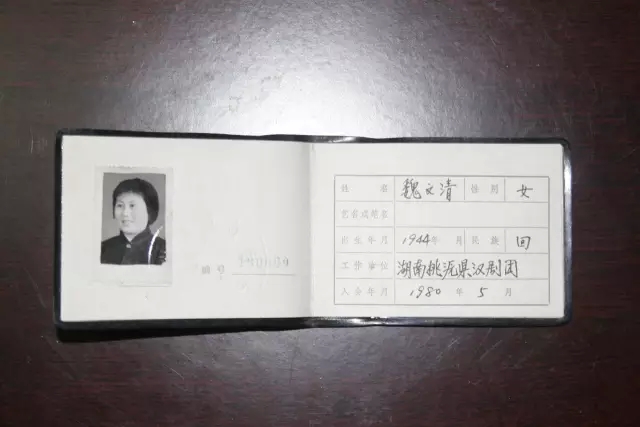 编号
姓名 魏文清 性别 女
艺名或笔名
出生年月 1944年 月 民族 回
工作单位 湖南桃沅县汉剧团
入会年月 1980年5月